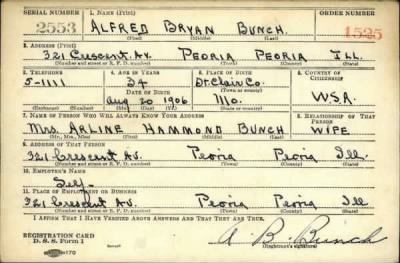 SERIAL NUMBER 1. NAME (Print) ORDER NUMBER
2553 ALFRED BRYAN BUNCH 1525
(First) (Middle) (Last)
2. ADDRESS (Print)
321 Crescent Av. PEORIA PEORIA ILL.
(Number and street or R. F. D. number) (Town) (County) (State)
3. TELEPHONE 4. AGE IN YEARS 5. PLACE OF BIRTH 6. COUNTRY OF CITIZENSHIP
5-1111 34 St. Clair Co.
DATE OF BIRTH (Town or county)
Aug 20 1906 Mo. U.S.A.
(Exchange) (Number) (Mo.) (Day) (Yr.) (State or country)
7. NAME OF PERSON WHO WILL ALWAYS KNOW YOUR ADDRESS 8. RELATIONSHIP OF THAT PERSON
Mrs. ARLINE HAMMOND BUNCH WIFE
(Mr., Mrs., Miss) (First) (Middle) (Last)
9. ADDRESS OF THAT PERSON
321 Crescent Av. Peoria Peoria Ill
(Number and street or R. F. D. number) (Town) (County) (State)
10. EMPLOYER'S NAME
Self
11. PLACE OF EMPLOYMENT OR BUSINESS
321 Crescent Av. Peoria Peoria Ill
(Number and street or R. F. D. number) (Town) (County) (State)
I AFFIRM THAT I HAVE VERIFIED ABOVE ANSWERS AND THAT THEY ARE TRUE.
REGISTRATION CARD
D. S. S. Form 1 A. B. Bunch
(Registrant's signature)